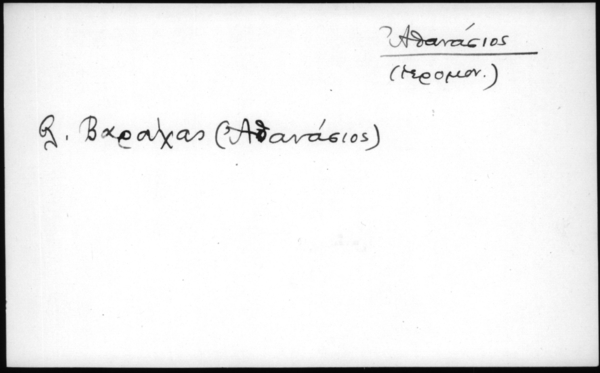 Ἀθανάσιος
(ἱερομον.)
βλ. Βαραχας (Ἀθανάσιος)